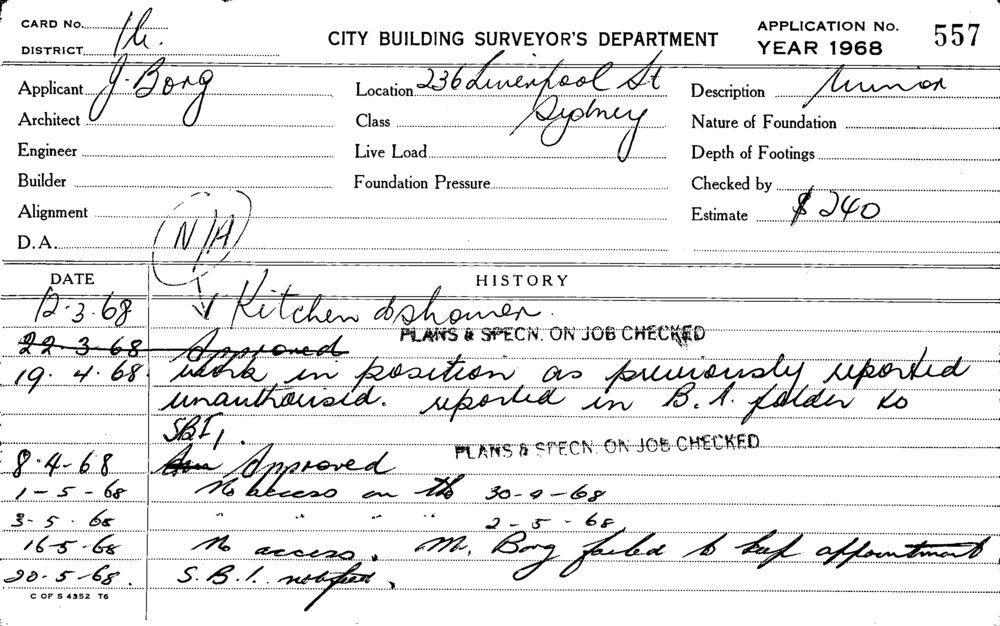 CARD No. 1h.
DISTRICT
CITY BUILDING SURVEYOR'S DEPARTMENT
APPLICATION No. 557
YEAR 1968
Applicant J. Borg
Location 236 Liverpool St
Sydney
Description Minor
Architect
Class
Nature of Foundation
Engineer
Live Load
Depth of Footings
Builder
Foundation Pressure
Checked by
Alignment
Estimate $240
D.A. N/A
DATE HISTORY
12.3.68 Kitchen & shower.
22-3-68 Approved PLANS & SPECN. ON JOB CHECKED
19.4.68. work in position as previously reported
unauthorised. reported in B.I. folder to
SBI,.
8.4-68 Approved PLANS & SPECN. ON JOB CHECKED
1-5-68 No access on the 30-4-68
3-5.68 " " " " 2-5-68,
16-5-68 No access. Mr. Borg failed to keep appointment
20.5-68. S.B.I. notified,
C OF S 4352 T6